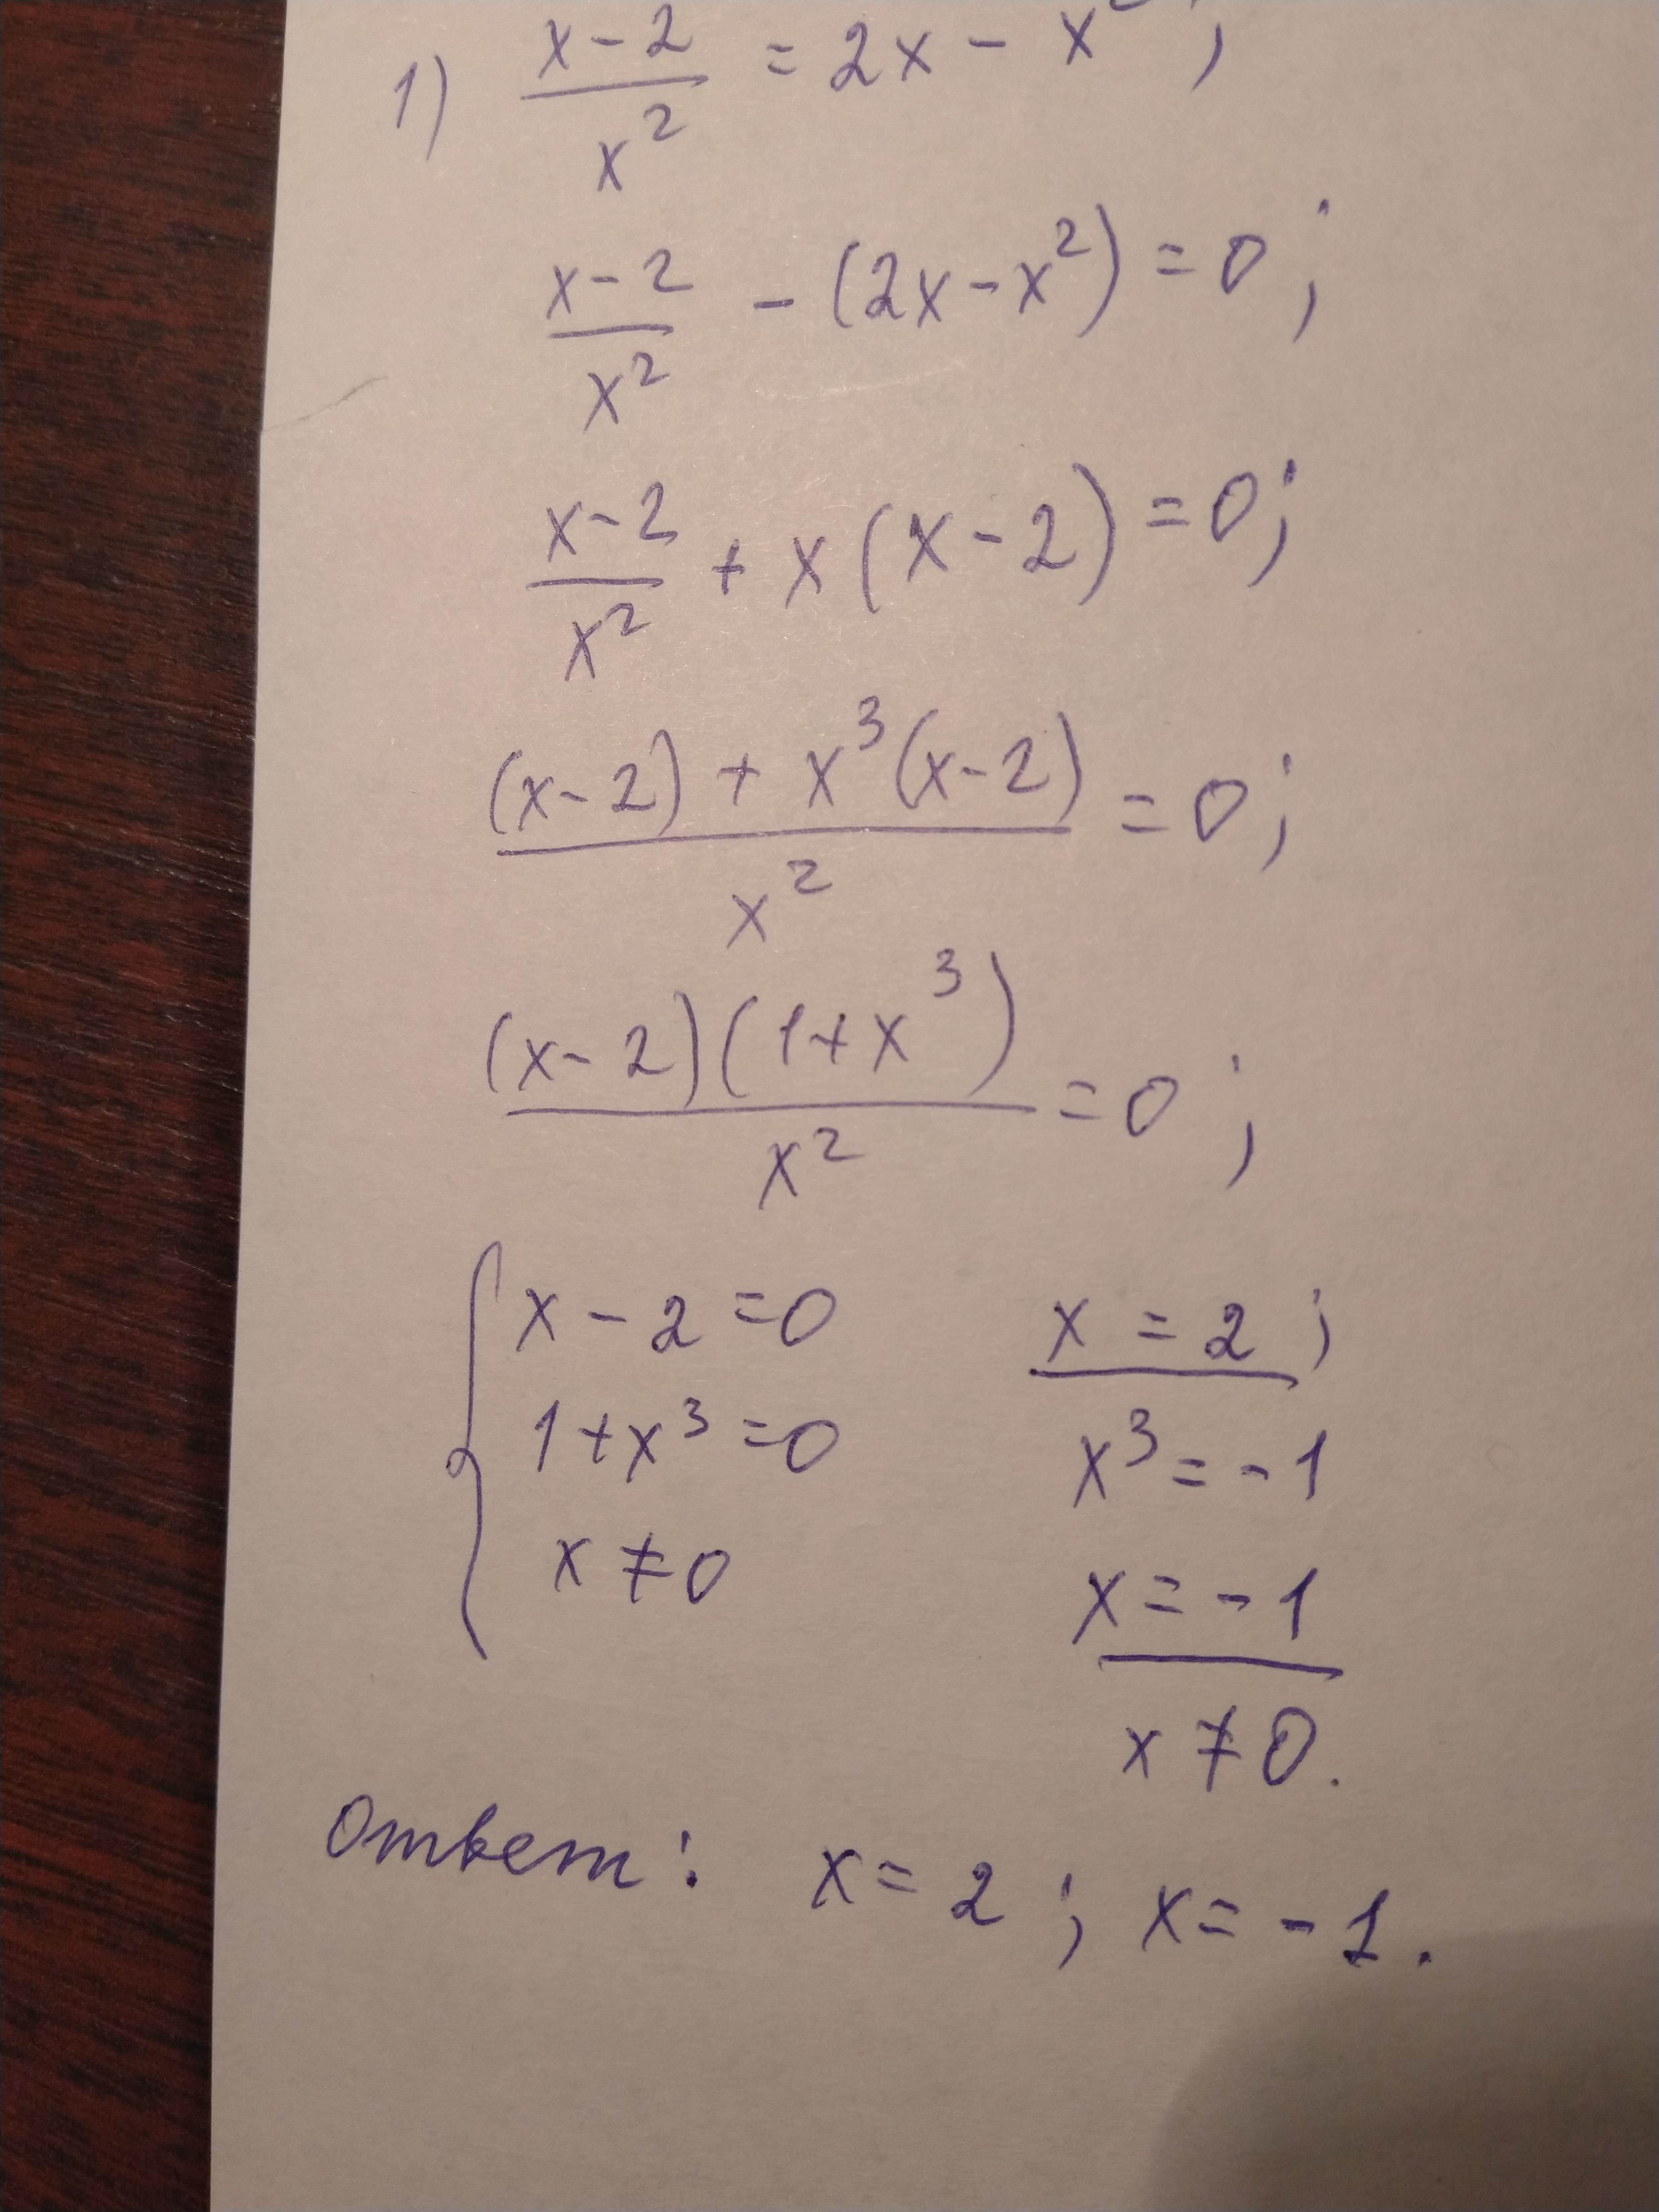 1) (x-2)/x² = 2x - x²;
(x-2)/x² - (2x-x²) = 0;
(x-2)/x² + x(x-2) = 0;
((x-2) + x³(x-2))/x² = 0;
((x-2)(1+x³))/x² = 0;
{ x - 2 = 0 x = 2;
1+x³ = 0 x³ = -1
x ≠ 0 x = -1
x ≠ 0.
Ответ: x = 2; x = -1.